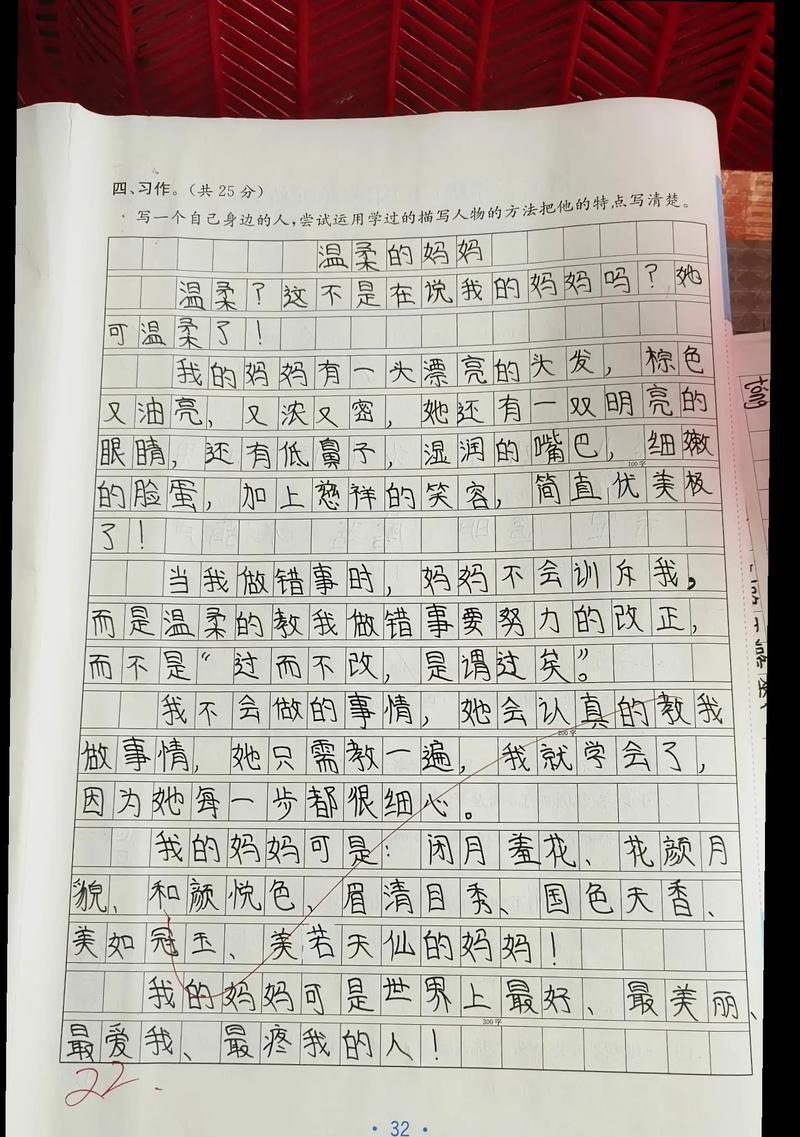 四、习作。(共25分)
写一个自己身边的人,尝试运用学过的描写人物的方法把他的特点写清楚。
温柔的妈妈
温柔?这不是在说我的妈妈吗?她
可温柔了!
我的妈妈有一头漂亮的头发,棕色
又油亮,又浓又密,她还有一双明亮的
眼睛,还有低鼻子,湿润的嘴巴,细嫩
100字
的脸蛋,加上慈祥的笑容,简直优美极
了!
当我做错事时,妈妈不会训斥我,
而是温柔的教我做错事要努力的改正,
而不是“过而不改,是谓过矣”。
我不会做的事情,她会认真的教我
200字
做事情,她只需教一遍,我就学会了,
因为她每一步都很细心。
我的妈妈可是:闭月羞花、花颜月
貌、和颜悦色、眉清目秀、国色天香、
美如冠玉、美若天仙的妈妈!
我的妈妈可是世界上最好、最美丽、
300字
最爱我、最疼我的人!
22
32